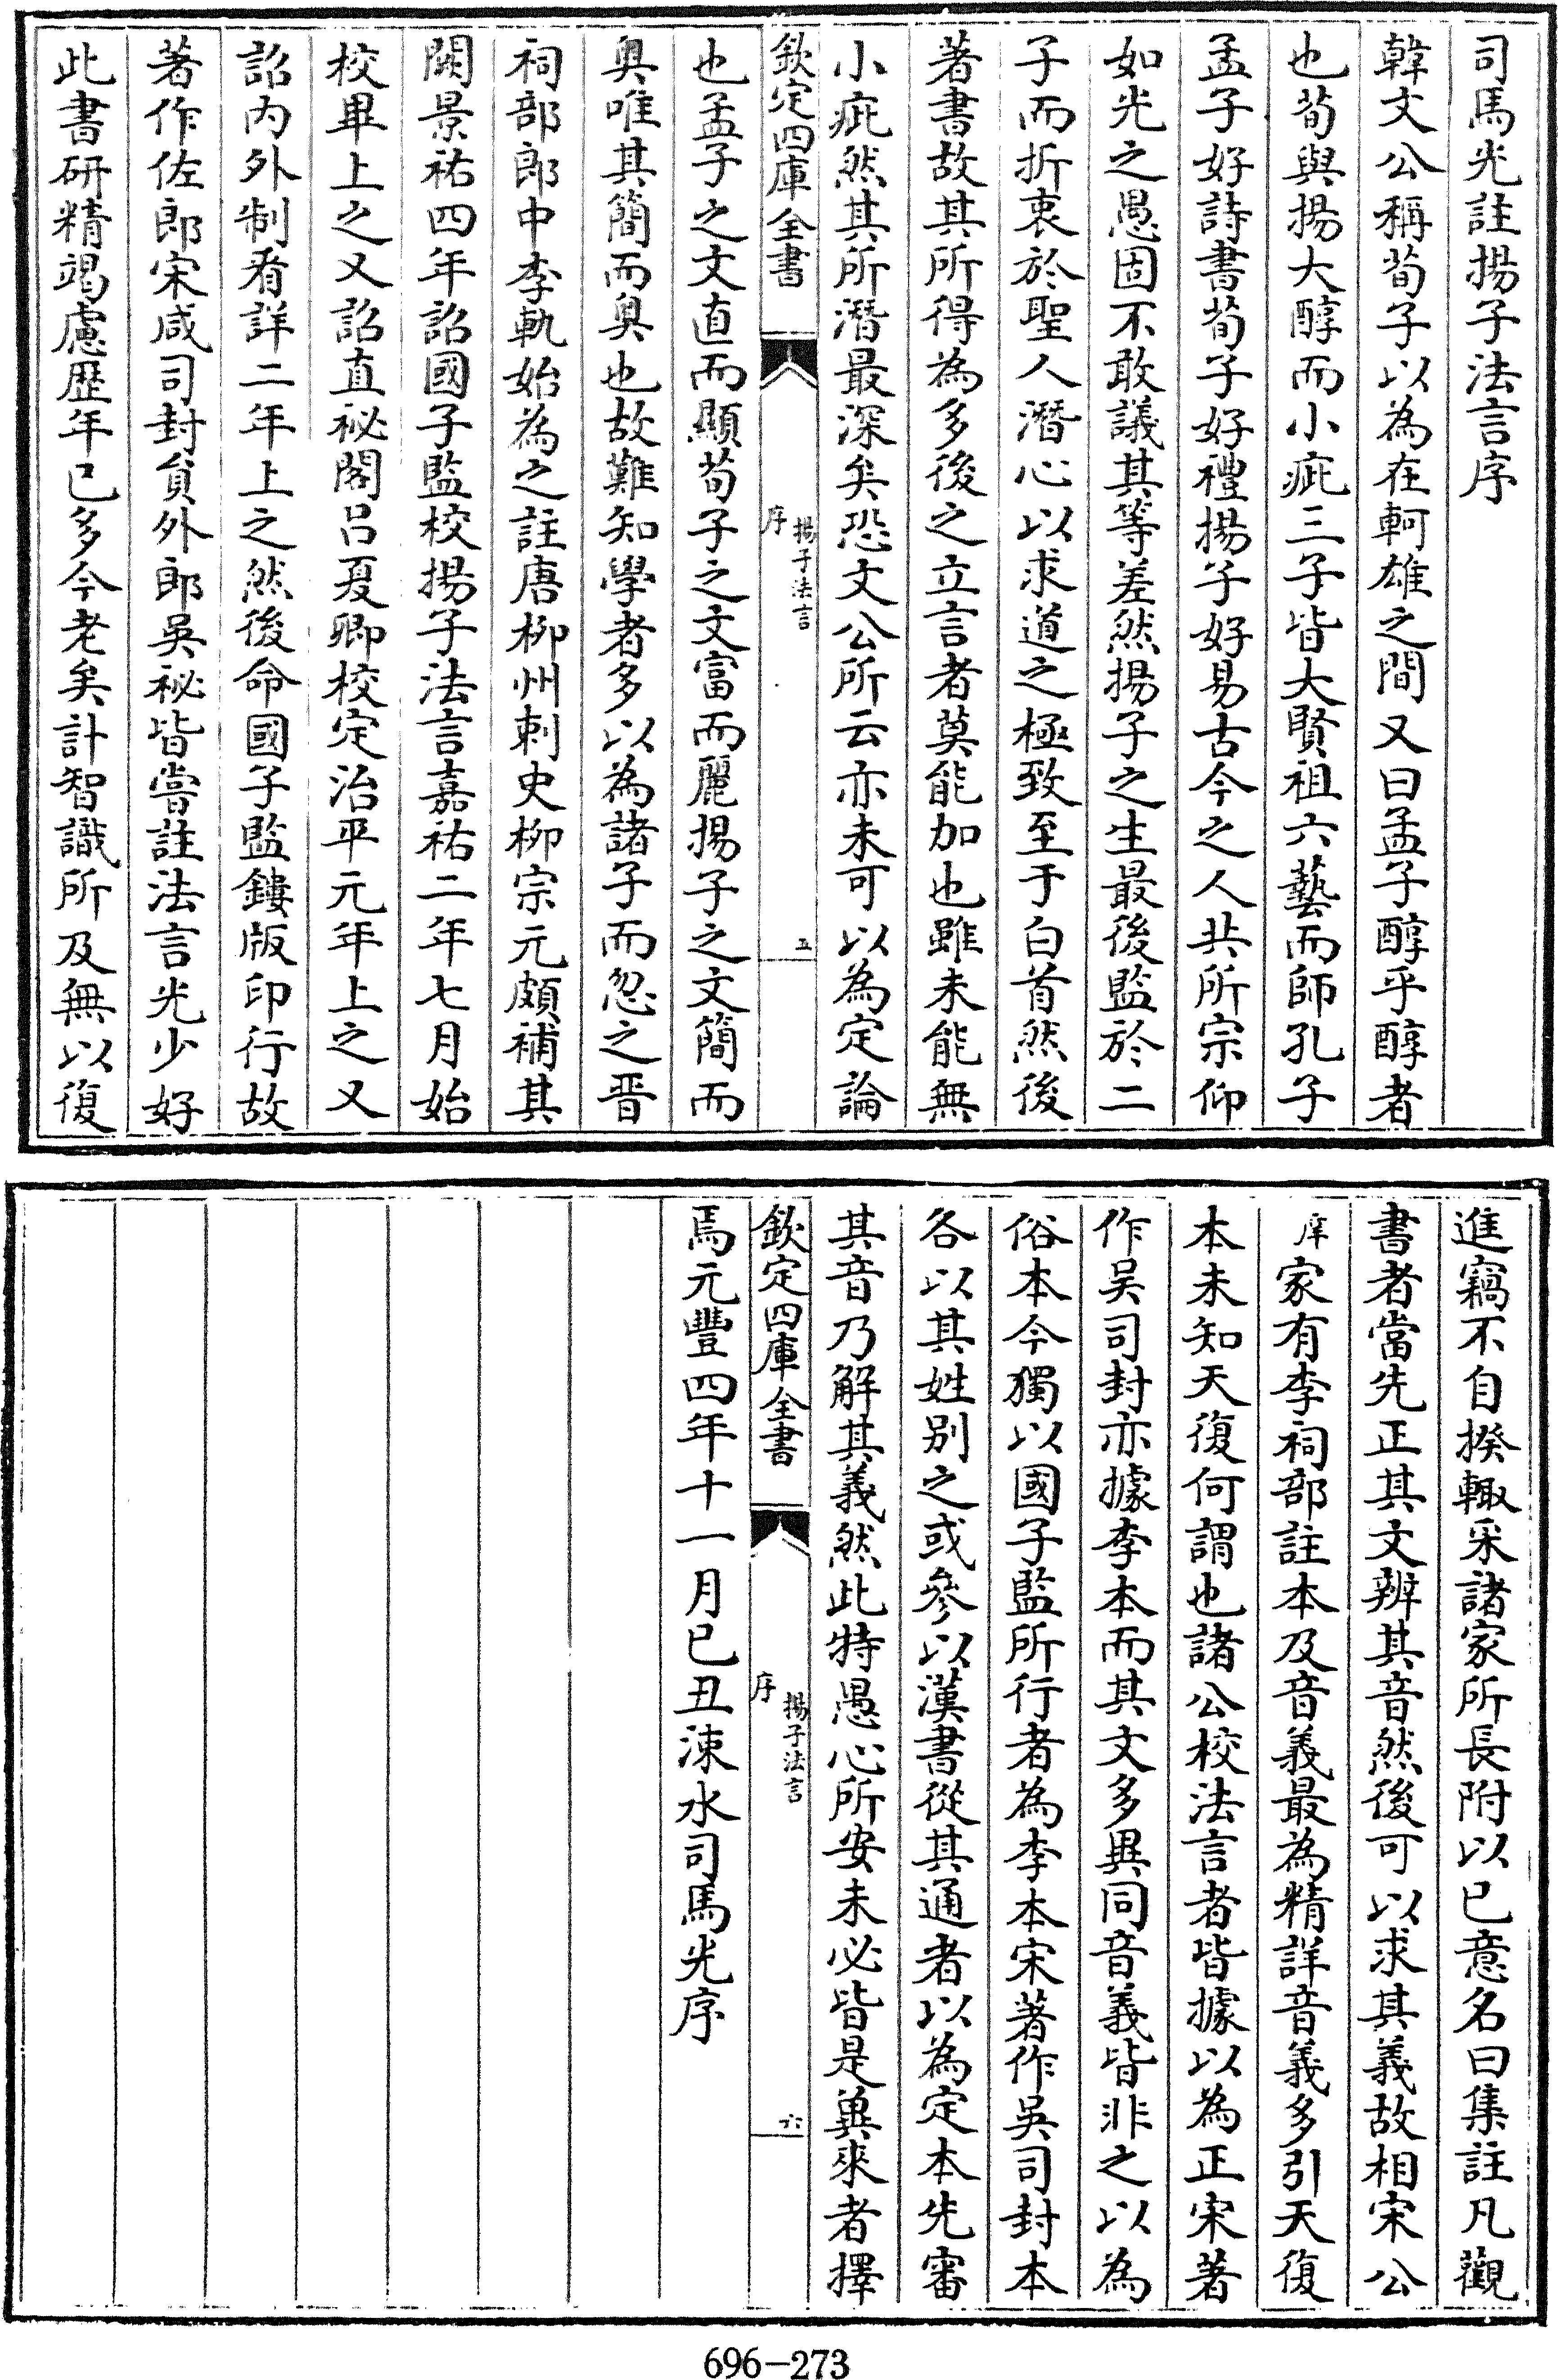 司馬光註揚子法言序
韓文公稱荀子以為在軻雄之間又曰孟子醇乎醇者
也荀與揚大醇而小疵三子皆大賢祖六藝而師孔子
孟子好詩書荀子好禮揚子好易古今之人共所宗仰
如光之愚固不敢議其等差然揚子之生最後監於二
子而折衷於聖人潛心以求道之極致至于白首然後
著書故其所得為多後之立言者莫能加也雖未能無
小疵然其所潛最深矣恐文公所云亦未可以為定論
欽定四庫全書
揚子法言
序
五
也孟子之文直而顯荀子之文富而麗揚子之文簡而
奥唯其簡而奥也故難知學者多以為諸子而忽之晋
祠部郎中李軌始為之註唐柳州刺史柳宗元頗補其
闕景祐四年詔國子監校揚子法言嘉祐二年七月始
校畢上之又詔直祕閣吕夏卿校定治平元年上之又
詔内外制看詳二年上之然後命國子監鏤版印行故
著作佐郎宋咸司封貟外郎吳祕皆嘗註法言光少好
此書研精竭慮歴年已多今老矣計智識所及無以復
進竊不自揆輙采諸家所長附以已意名曰集註凡觀
書者當先正其文辨其音然後可以求其義故相宋公
庠家有李祠部註本及音義最為精詳音義多引天復
本未知天復何謂也諸公校法言者皆據以為正宋著
作吳司封亦據李本而其文多異同音義皆非之以為
俗本今獨以國子監所行者為李本宋著作吳司封本
各以其姓别之或參以漢書從其通者以為定本先審
其音乃解其義然此特愚心所安未必皆是兾來者擇
欽定四庫全書
揚子法言
序
六
焉元豐四年十一月已丑涑水司馬光序
696-273